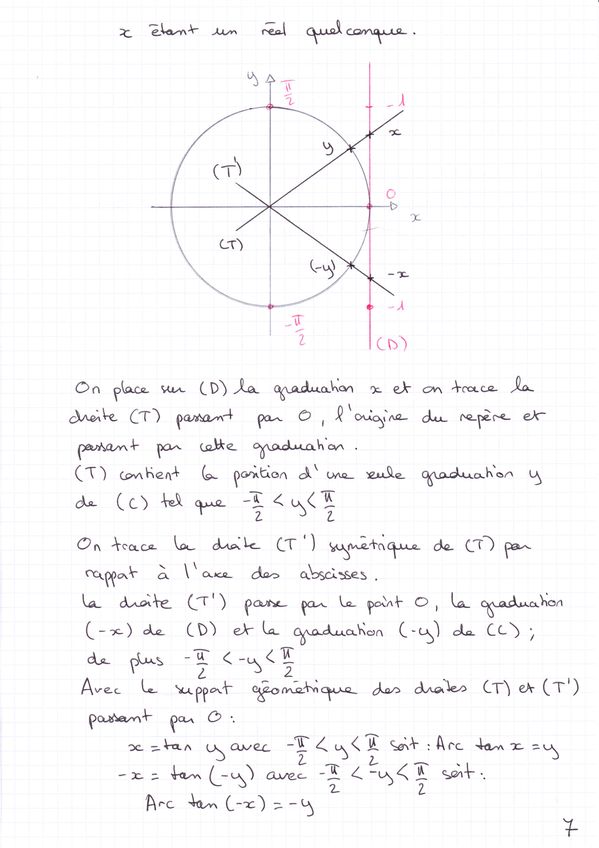 x étant un réel quelconque.
y
π/2
-1
y
x
(T')
0
x
(T)
(-y)
-x
-1
-π/2
(D)
On place sur (D) la graduation x et on trace la
droite (T) passant par O, l'origine du repère et
passant par cette graduation.
(T) contient la position d'une seule graduation y
de (C) tel que -π/2 < y < π/2
On trace la droite (T') symétrique de (T) par
rapport à l'axe des abscisses.
la droite (T') passe par le point O, la graduation
(-x) de (D) et la graduation (-y) de (C) ;
de plus -π/2 < -y < π/2
Avec le support géométrique des droites (T) et (T')
passant par O :
x = tan y avec -π/2 < y < π/2 soit : Arc tan x = y
-x = tan (-y) avec -π/2 < -y < π/2 soit :
Arc tan (-x) = -y
7